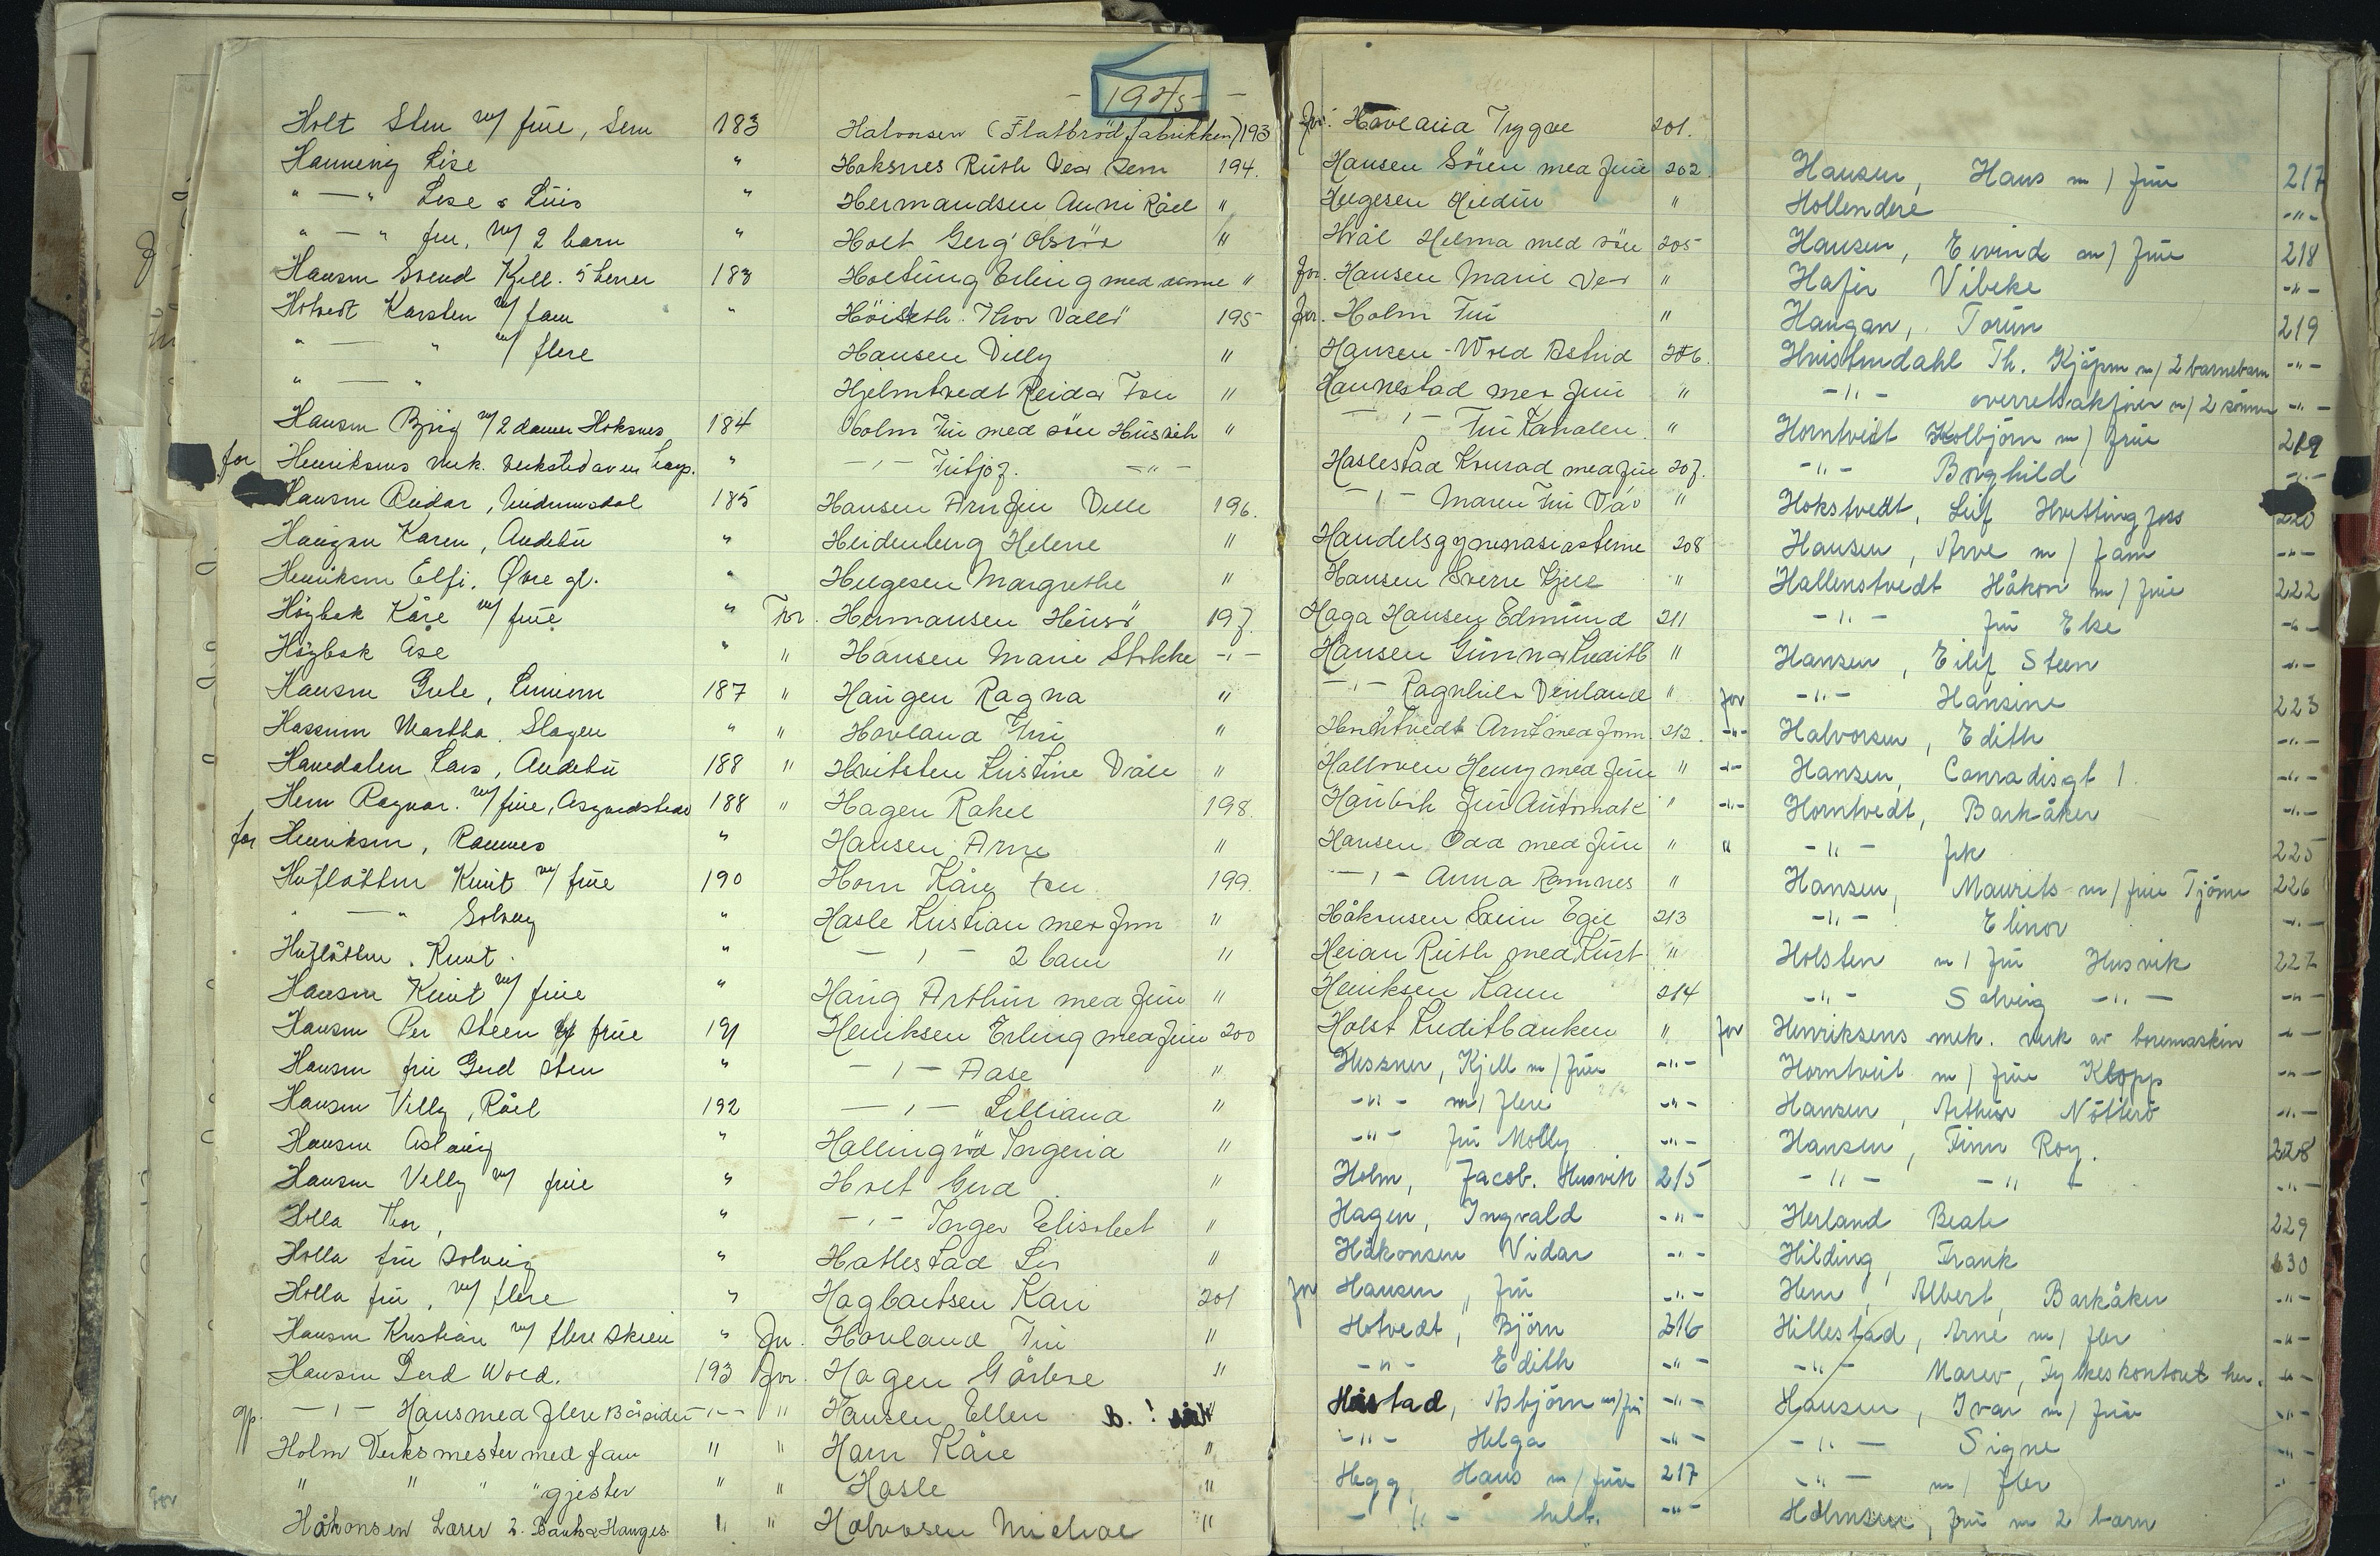 1945
Holt Sten m/ frue, Sem 183
Hanning Lise "
" — " Lise & Liiis "
" — " fru, m/ 2 barn "
Hansen Svend Kjell. 5 herrer 183
Hotvedt Karsten m/ fam "
" — " m/ flere
" — "
Hansen Björg m/ 2 damer Hoksnes 184
for Henriksens mek. verksted av en lamp. "
Hansen Reidar, 185
Haugan Karen, Andebu "
Henriksen Elfi. Øvre gt. "
Høybak Kåre m/ frue "
Høybak Åse "
Hansen Grete, 187
Hassum Martha, Slagen "
Hanedalen Lars, Andebu 188
Hem Ragnar. m/ frue, 188
for Henriksen, Ramnes "
Hufløtten Knut m/ frue 190
" — " Solveig "
Hufløtten. Knut. "
Hansen Knut m/ frue "
Hansen Per Steen m/ frue 191
Hansen fru Gerd Sten "
Hansen Villy, Råel 192
Hansen Aslaug "
Hansen Villy m/ frue "
Holla Thor, "
Holla fru Solveig "
Holla fru, m/ flere "
Hansen Kristian m/ flere Skien "
Hansen Gerd Wold. 193
— " — Hans med flere — " —
Holm Verksmester med fam "
" " " " gjester "
Håkonsen Lærer 2. "
Halvorsen (Flatbrödfabrikken) 193
Hoksnes Ruth Vea Sem 194.
Hermandsen Anni Råel "
Holt Gerg "
Holtung Erling med samme "
Höiseth. Thor Vallö 195
Hansen Villy "
Hjelmtvedt Reidar Fru "
Holm Fru med sön Husvik "
— " — Fritjof. — " —
Hansen Arn Fru Velle 196.
Heidenberg Helene "
Helgesen Margrethe "
For. Hermansen Husö 197.
" Hansen Marie Stokke — " —
" Haugen Ragna "
" Hovland Fru "
" Hvitsten Kristine Våle "
" Hagen Rakel 198.
Hansen Arne "
Horn Kåre Fru 199.
Hasle Kristian med Fru "
— " — 2 barn "
Haug Arthur med Fru "
Henriksen Erling med Fru 200
— " — Aase "
— " — Lilliana "
Hallingrød "
Holt Gerd "
— " — Inger Elisabet "
Hallestad Lis "
Hagbartsen Kari 201
For. Hovland Fru "
For. Hagen Gårbre "
" Hansen Ellen B. ! "
" Horn Kåre "
" Hasle "
" Halvorsen Michal "
For. Hovland Trygve 201.
Hansen Sören med Frue 202.
Helgesen "
Hvål Helma med sön 205
For. Hansen Marie Vea "
For. Holm Fru "
Hansen-Wold Astrid 206.
Haunestad med Frue "
— " — Fru Kanalen. "
Haslestad Konrad med Frue 207.
— " — Maren Fru "
Handelsgymnasiastene 208
Hansen Sverre Kjell "
Haga Hansen Edmund 211
Hansen Gunnar Kreditb "
— " — Ragnhild "
Horntvedt Arnt med Fam. 212.
Hallmen Henry med Frue "
Haubek Fru Automatc "
Hansen Odd med Frue "
— " — Anna Ramnes "
Håkonsen Svein Egil 213
Heian Ruth med Kurt "
Henriksen Karin 214
Holst Kreditbanken "
Hessner, Kjell m/ frue — " —
— " — m/ flere — " —
— " — fru Molly — " —
Holm, Jacob. Husvik 215
Hagen, Ingvald — " —
Håkonsen Vidar — " —
for Hansen, fru — " —
Hotvedt, Björn 216
— " — Edith — " —
Håstad, Asbjörn m/ fru — " —
— " — Helga — " —
Hegg, Hans m/ frue 217
— " — — " —
Hansen, Hans m/ frue 217
Hollendere — " —
Hansen, Eivind m/ frue 218
Hafir Vibeke — " —
Haugan, Torun 219
Hvistendahl Th. Kjøpm m/ 2 barnebarn — " —
— " — overrettsakfører m/ 2 sönner — " —
Horntvedt Kolbjörn m/ frue 219
— " — Borghild — " —
Hokstvedt, Leif Hvittingfoss 220
Hansen, Arve m/ fam — " —
Hallenstvedt Håkon m/ frue 222
— " — fru Else — " —
Hansen, Eilif Steen — " —
for — " — Hansine 223
— " — Halvorsen, Edith — " —
— " — Hansen, Conradisgt 1. — " —
— " — Horntvedt, Barkåker — " —
" — " — frk 225
Hansen, Maurits m/ frue Tjöme 226
— " — Elinor — " —
Holsten m/ fru Husvik 227
— " — Solveig — " — — " —
for Henriksens mek. verk av boremaskin — " —
Horntveit m/ frue Klopp — " —
Hansen, Arthur Nötterö — " —
Hansen, Finn Roy. 228
— " — — " — — " —
Herland Beate 229
Hilding, Frank 230
Hem, Albert, Barkåker — " —
Hillestad, Arne m/ fler — " —
— " — Marev, Fylkeskontoret her. — " —
Hansen, Ivar m/ frue — " —
— " — Signe — " —
— " — m/ fler — " —
Holmsen, fru m 2 barn